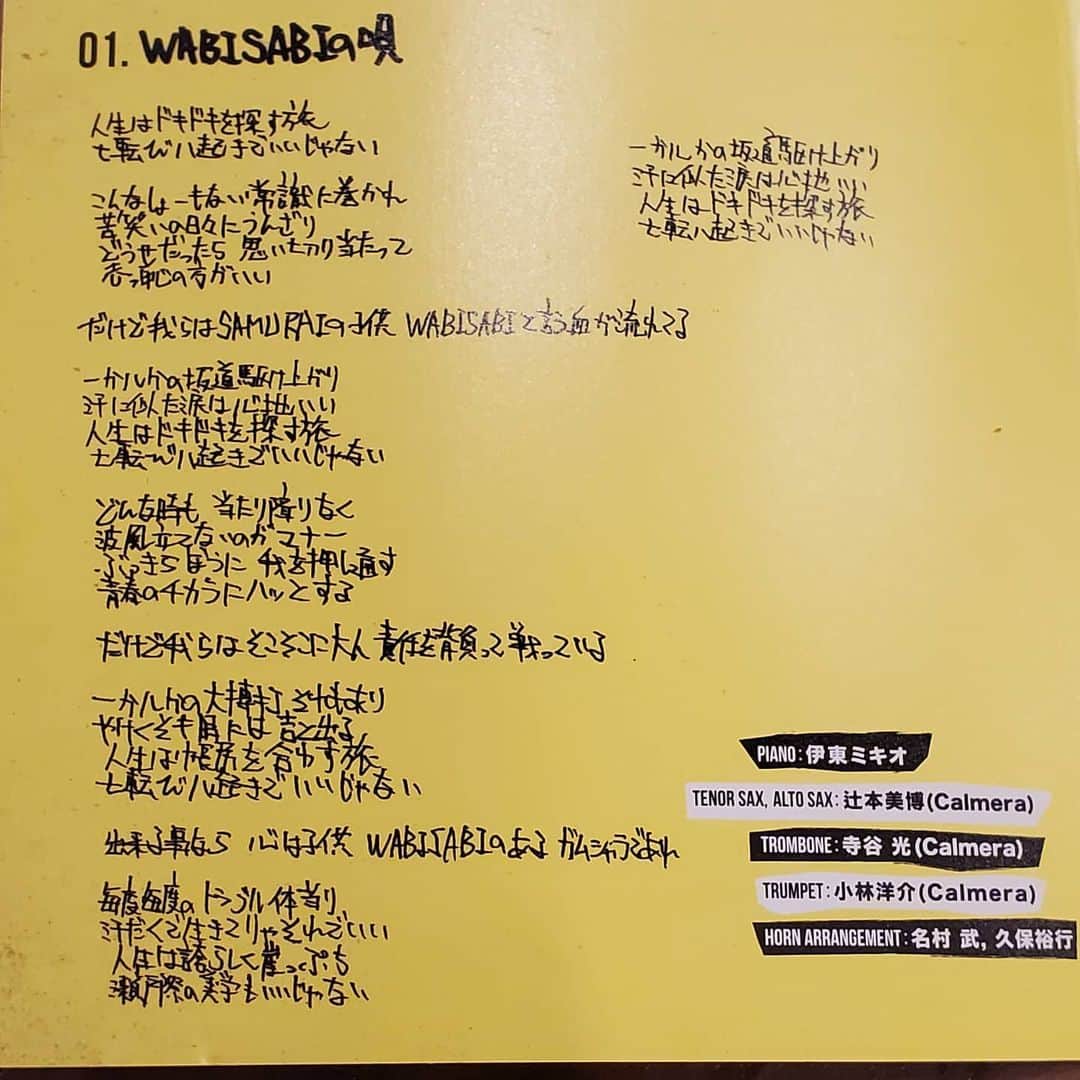 01. WABISABIの唄
人生はドキドキを探す旅
七転び八起きでいいじゃない
こんなしょーもない常識に巻かれ
苦笑いの日々にうんざり
どうせだったら 思い切り当たって
赤っ恥の方がいい
だけど我らはSAMURAIの子供 WABISABIと言う血が流れてる
一か八かの坂道駆け上がり
汗に似た涙は心地いい
人生はドキドキを探す旅
七転び八起きでいいじゃない
どんな時も 当たり障りなく
波風立てないのがマナー
ぶっきらぼうに 我を押し通す
青春のチカラにハッとする
だけど我らはそこそこに大人 責任を背負って戦っている
一か八かの大博打
やけくそも 時には 吉と出る
人生は帳尻を合わす旅
七転び八起きでいいじゃない
出来る事なら 心は子供 WABISABIのある ガムシャラであれ
毎度毎度のトラブル体当り
汗だくで生きてりゃそれでいい
人生は誇らしく崖っぷち
瀬戸際の美学もいいじゃない
一か八かの坂道駆け上がり
汗に似た涙は心地いい
人生はドキドキを探す旅
七転八起きでいいじゃない
PIANO：伊東ミキオ
TENOR SAX, ALTO SAX：辻本美博(Calmera)
TROMBONE：寺谷 光(Calmera)
TRUMPET：小林洋介(Calmera)
HORN ARRANGEMENT：名村 武, 久保裕行